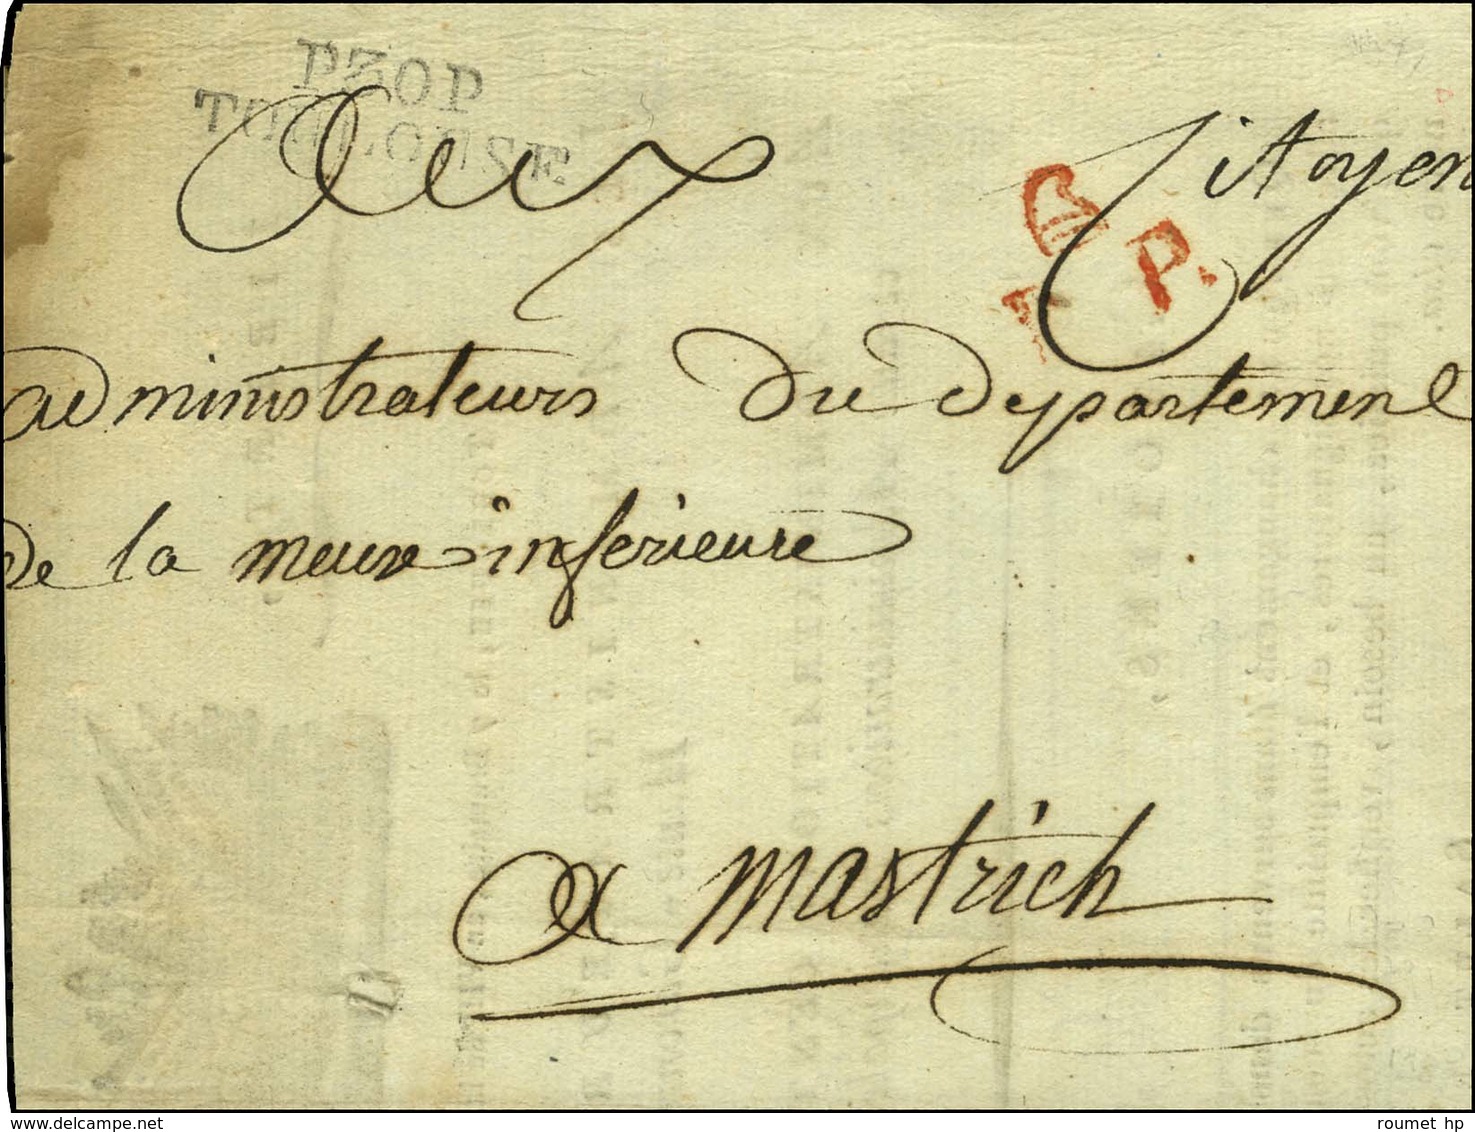 P30P
TOULOUSE.
Aux Citoyen
P. P.
administrateurs du departement
de la meuse inferieure
a mastrich
delcampe.net
roumet hp